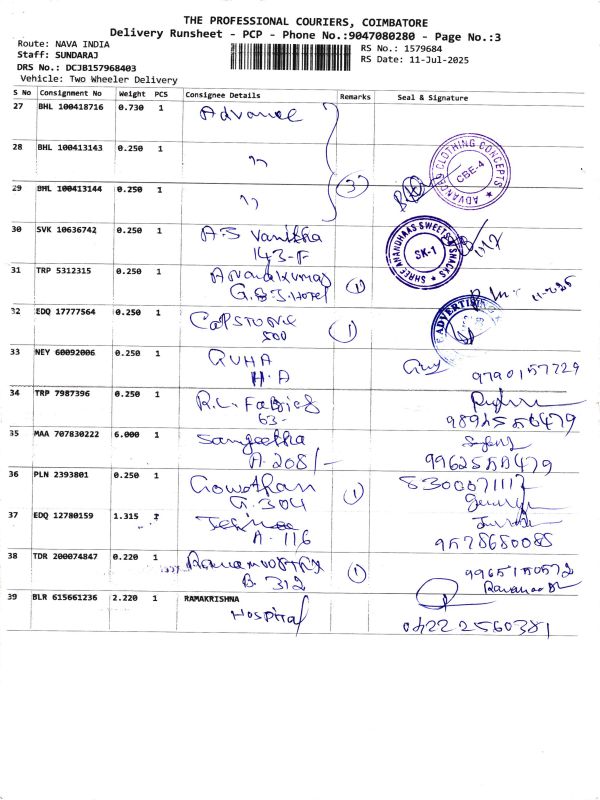 THE PROFESSIONAL COURIERS, COIMBATORE
Delivery Runsheet - PCP - Phone No.:9047080280 - Page No.:3
Route: NAVA INDIA
Staff: SUNDARAJ
DRS No.: DCJB157968403
Vehicle: Two Wheeler Delivery
RS No.: 1579684
RS Date: 11-Jul-2025
S No Consignment No Weight PCS Consignee Details Remarks Seal & Signature
27 BHL 100418716 0.730 1 Advance
28 BHL 100413143 0.250 1 "
29 BHL 100413144 0.250 1 " 3
ADVANCED CLOTHING CONCEPTS
CBE-4
30 SVK 10636742 0.250 1 A.S Vanitha
143-F
SHREE ANANDHAAS SWEETS & SNACKS
SK-1
31 TRP 5312315 0.250 1 Anandakumar 1
G.S.T. Hotel
32 EDQ 17777564 0.250 1 Capstone 1
500
33 NEY 60092006 0.250 1 GUHA
H.A
9790157729
34 TRP 7987396 0.250 1 R.C. Fabrics
63-
35 MAA 707830222 6.000 1 Sangeetha
A.208/-
36 PLN 2393801 0.250 1 Gowthan 1 8300071117
G.304
37 EDQ 12780159 1.315 1
A. 116
9578680088
38 TDR 200074847 0.220 1 1 9965150572
B. 312
39 BLR 615661236 2.220 1 RAMAKRISHNA
Hospital
0422 2560381